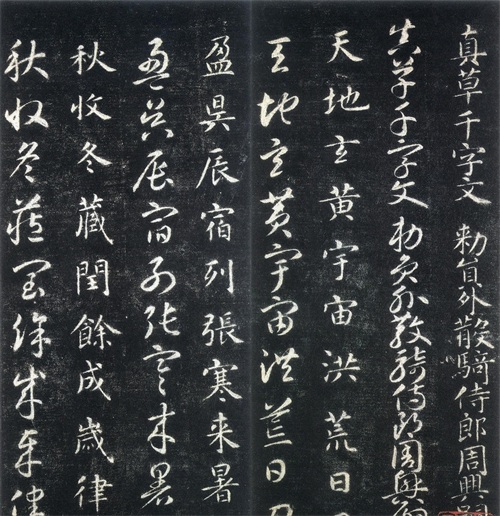 真草千字文 勅員外散騎侍郎周興嗣
真草千字文勅員外散騎侍郎周興嗣
天地玄黄宇宙洪荒日
天地玄黄宇宙洪荒日月
盈昃辰宿列張寒来暑
盈昃辰宿列張寒来暑
秋收冬藏閏餘成歲律
秋收冬藏閏餘成歲律